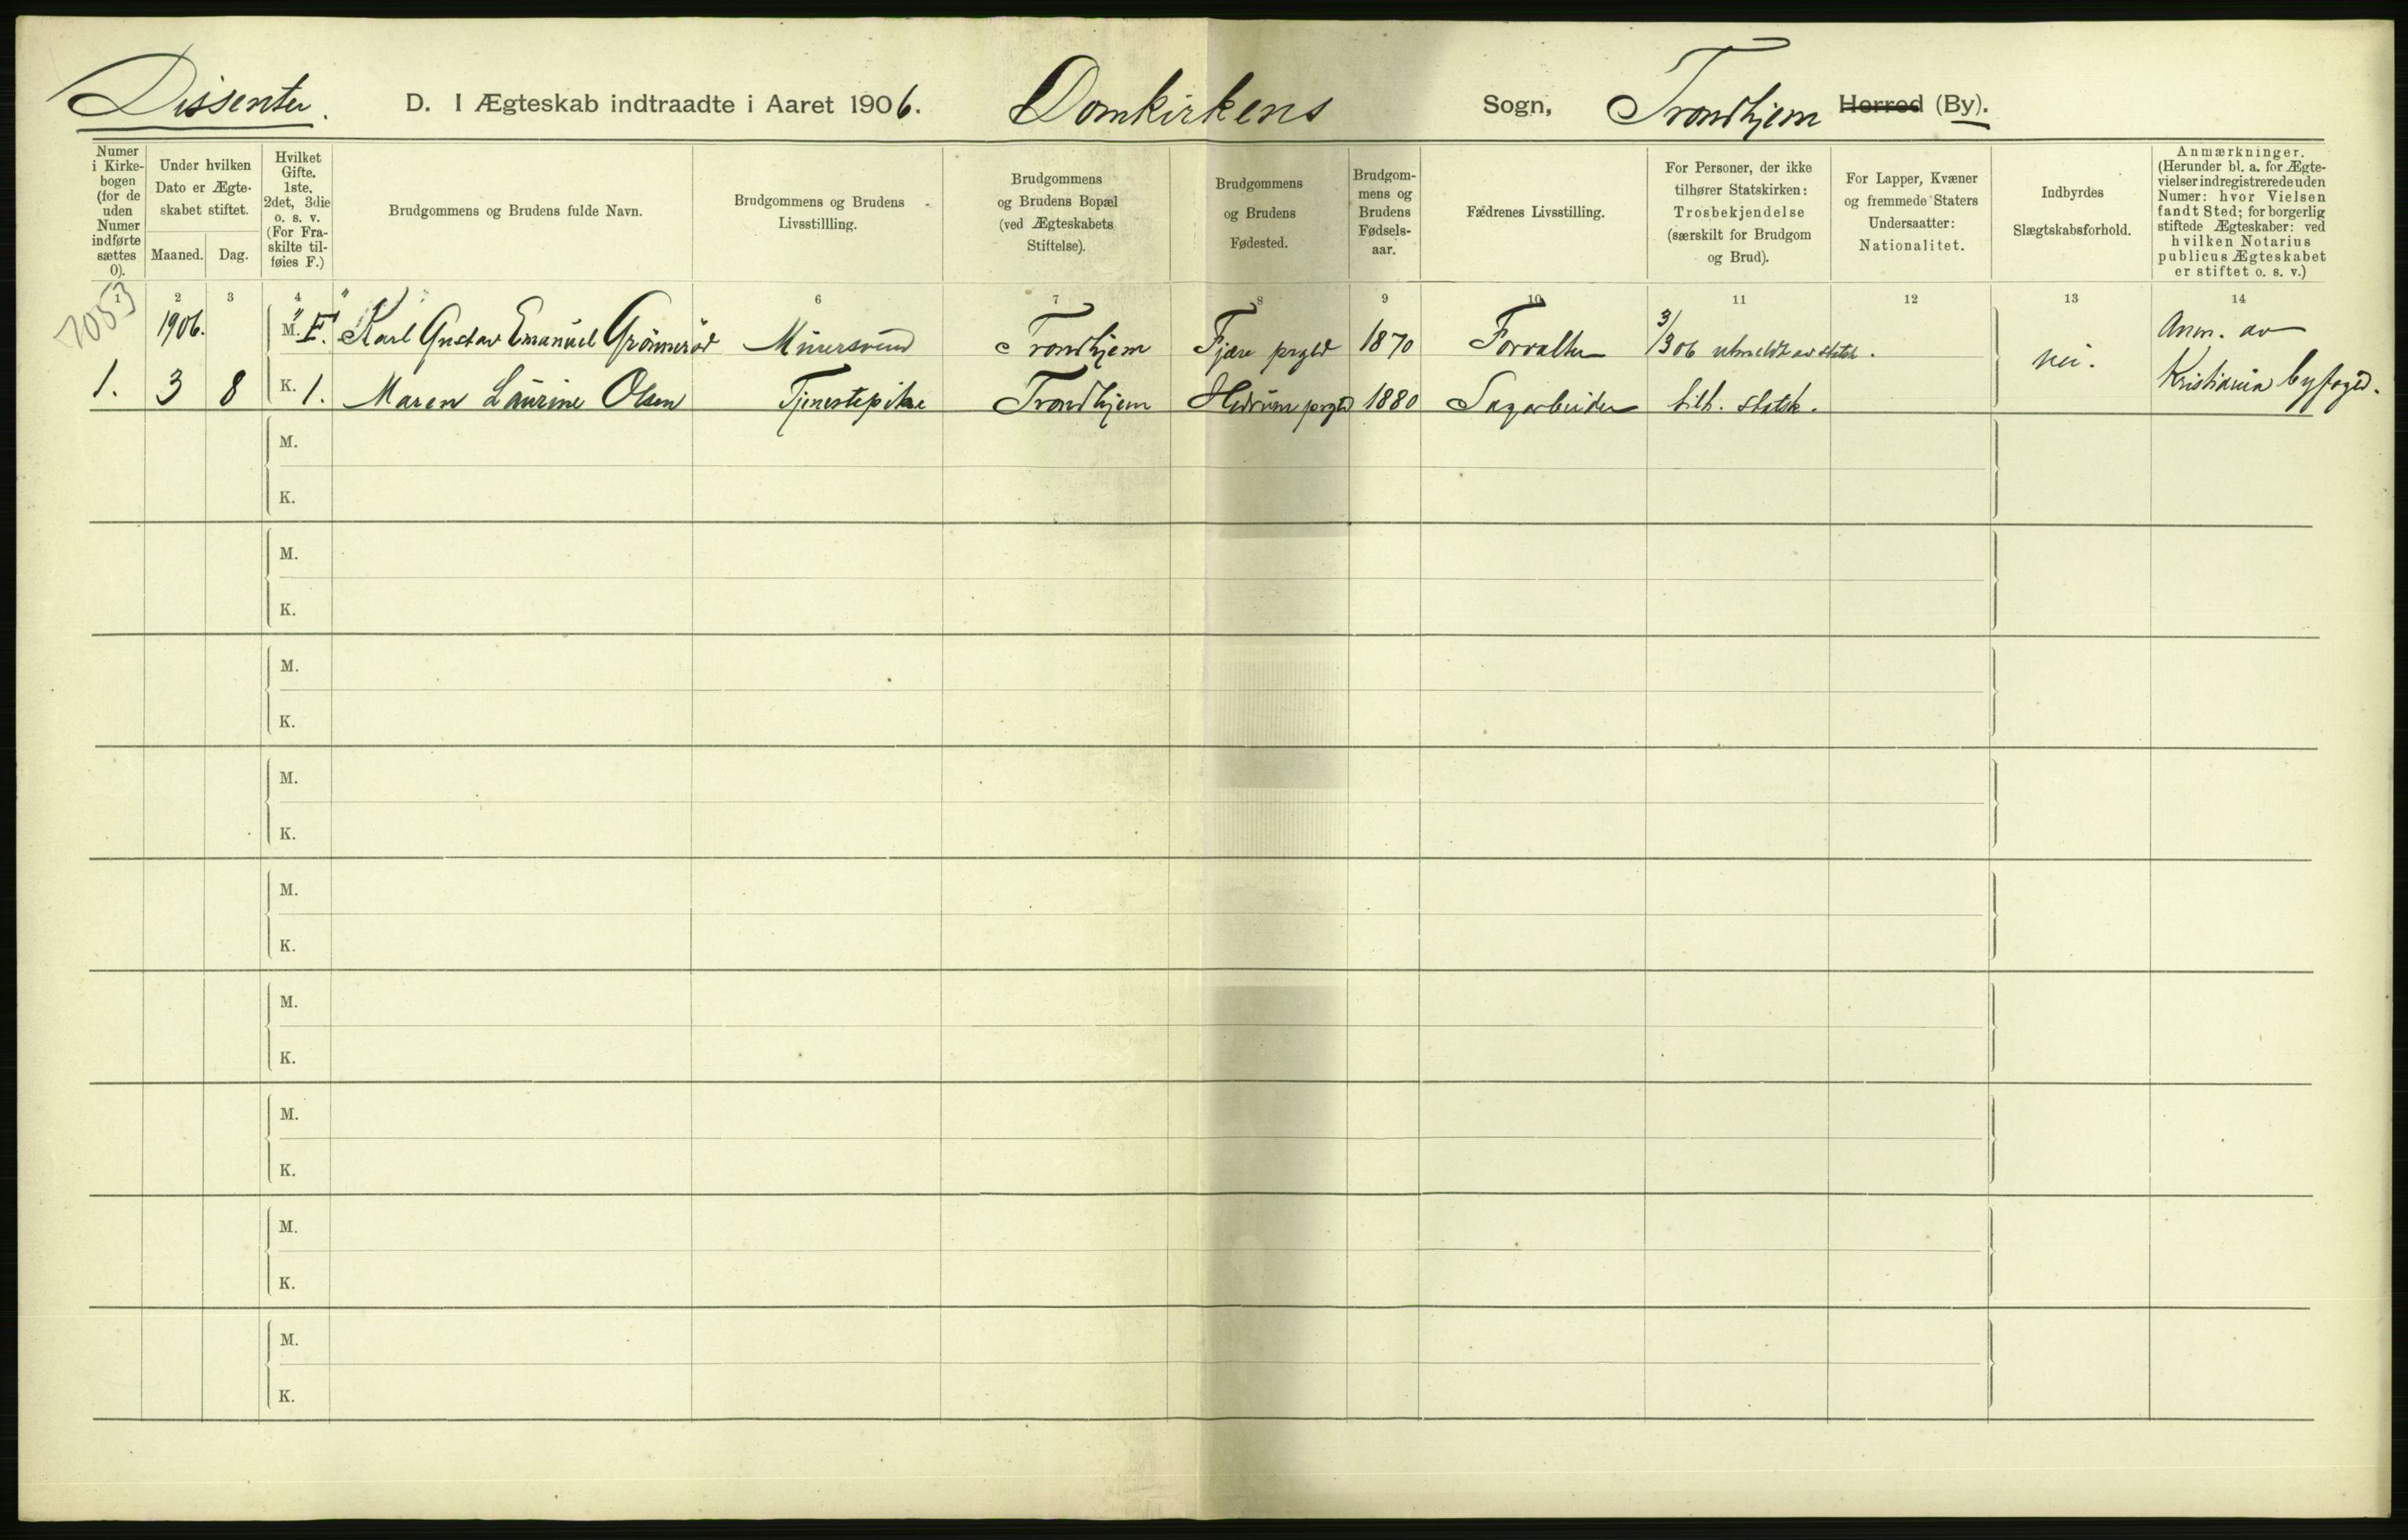 Dissenter.
D. I Ægteskab indtraadte i Aaret 1906. Domkirkens Sogn, Trondhjem Herred (By).
Numer i Kirke-bogen (for de uden Numer indførte sættes 0).
Under hvilken Dato er Ægte-skabet stiftet.
Maaned. Dag.
Hvilket Gifte. 1ste, 2det, 3die o. s. v. (For Fra-skilte til-føies F.)
Brudgommens og Brudens fulde Navn.
Brudgommens og Brudens Livsstillling.
Brudgommens og Brudens Bopæl (ved Ægteskabets Stiftelse).
Brudgommens og Brudens Fødested.
Brudgom-mens og Brudens Fødsels-aar.
Fædrenes Livsstilling.
For Personer, der ikke tilhører Statskirken: Trosbekjendelse (særskilt for Brudgom og Brud).
For Lapper, Kvæner og fremmede Staters Undersaatter: Nationalitet.
Indbyrdes Slægtskabsforhold.
Anmærkninger. (Herunder bl. a. for Ægte-vielser indregistrerede uden Numer: hvor Vielsen fandt Sted; for borgerlig stiftede Ægteskaber: ved hvilken Notarius publicus Ægteskabet er stiftet o. s. v.)
1 2 3 4 6 7 8 9 10 11 12 13 14
7053
1906. M. F. Karl Gustav Emanuel Grönneröd Murersvend Trondhjem Fjære prgjld 1870 Forvalter 3/3 06 utmeldt av statsk. nei. Anm. av
1. 3 8 K. 1. Maren Laurine Olsen Tjenestepike Trondhjem Hedrum prgjld 1880 Sagarbeider tilh. statsk. Kristiania byfoged.
M.
K.
M.
K.
M.
K.
M.
K.
M.
K.
M.
K.
M.
K.
M.
K.
M.
K.